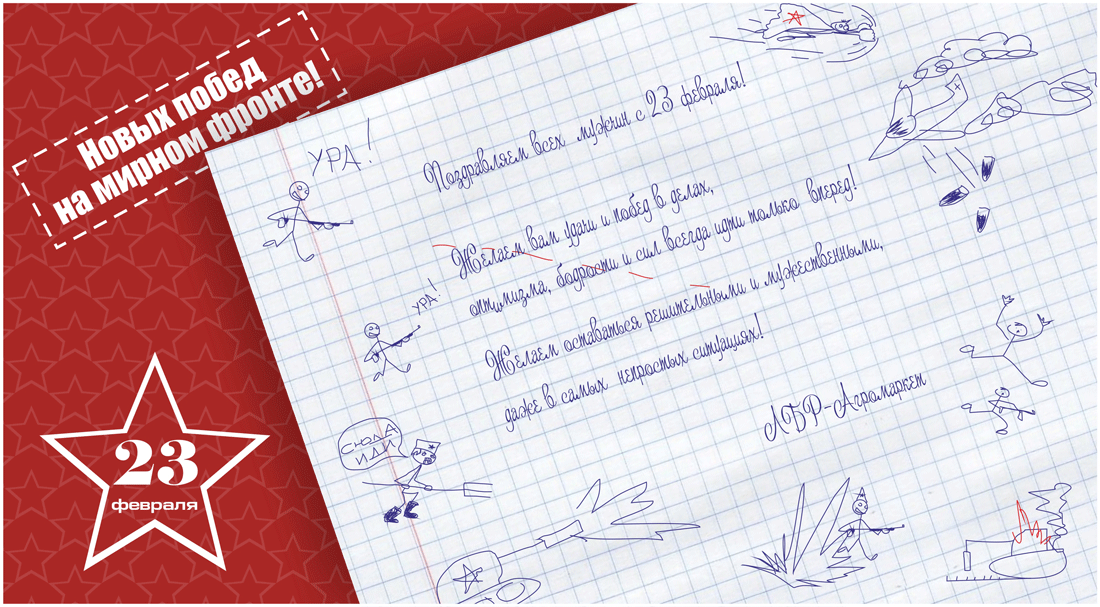 Новых побед
на мирном фронте!
УРА!
Поздравляем всех мужчин с 23 февраля!
Желаем вам удачи и побед в делах,
оптимизма, бодрости и сил всегда идти только вперед!
УРА!
Желаем оставаться решительными и мужественными,
даже в самых непростых ситуациях!
ЛБР-Агромаркет
СЮДА
ИДИ
23
февраля